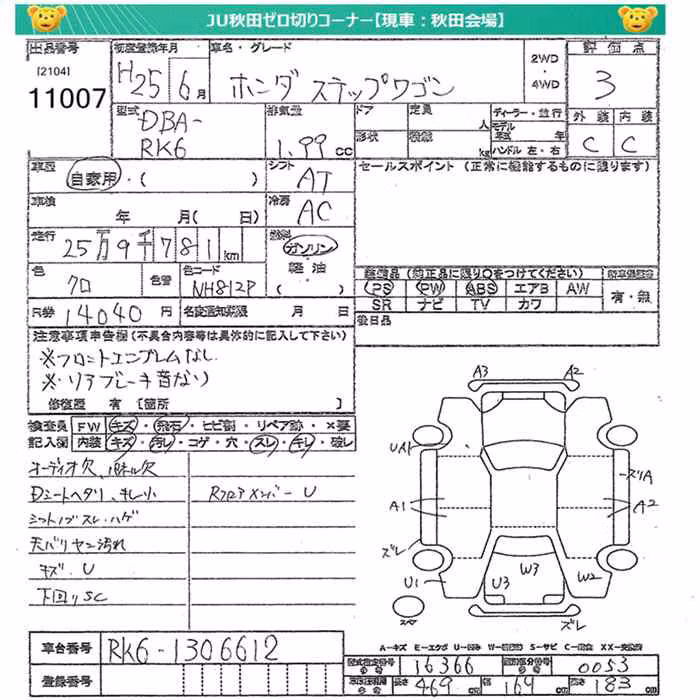 JU秋田ゼロ切りコーナー【現車：秋田会場】
出品番号
[2104]
11007
初度登録年月
H25 6月
車名・グレード
ホンダ ステップワゴン
2WD・4WD
評価点
3
外装 内装
C C
型式
DBA-
RK6
排気量
1.99 cc
ドア 定員 人
形状 積載 kg
ディーラー・並行
モデル年式 年
ハンドル 左・右
車歴
自家用・( )
シフト
AT
セールスポイント (正常に機能するものに限ります)
車検
年 月( 日)
冷房
AC
走行
25万9千781km
燃料
ガソリン
軽油
( )
色
クロ
色替
色コード
NH812P
装備品 (純正品に限り○をつけてください)
PS PW ABS エアB AW
SR ナビ TV カワ
有・無
14040円
名変通知期限 月 日
後日品
注意事項申告欄 (不具合内容等は具体的に記入して下さい)
※フロントエンブレムなし
※・リアブレーキ音なり
修復歴 有 [箇所 ]
検査員 FW キズ・飛石・ヒビ割・リペア跡・×要
記入欄 内装 キズ・汚レ・コゲ・穴・スレ・キレ・破レ
オーディオ欠、パネル欠
Dシートヘタリ、キレ小
シフトノブスレ・ハゲ
天バリヤニ汚れ
キズ・U
下回りSC
Rフロアメンバー U
A3 A2
UA1
ズリA
A1 A2
ズレ
U1
U3 W3 W2
スペア
ズレ
A-キズ E-エクボ U-凹み W-波(板金) S-サビ C-腐食 XX-交換済
車台番号
RK6-1306612
登録番号
型式指定番号
16366
類別区分番号
0053
長さ 469cm 幅 169cm 高さ 183cm